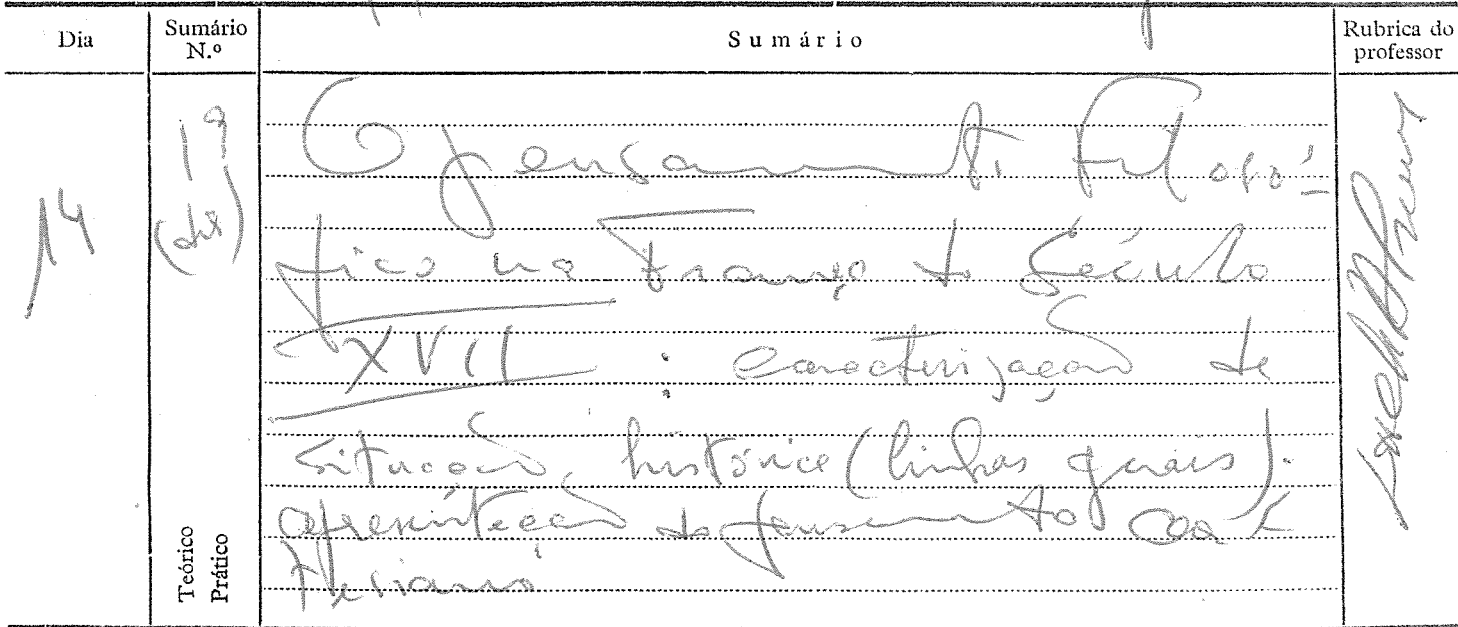 Dia
Sumário N.º
Sumário
Rubrica do professor
14
1º
O pensamento Filosó-
fico na França do Século
XVII : caracterização da
situação histórica (linhas gerais).
apresentação do pensamento car-
tesiano
Teórico
Prático